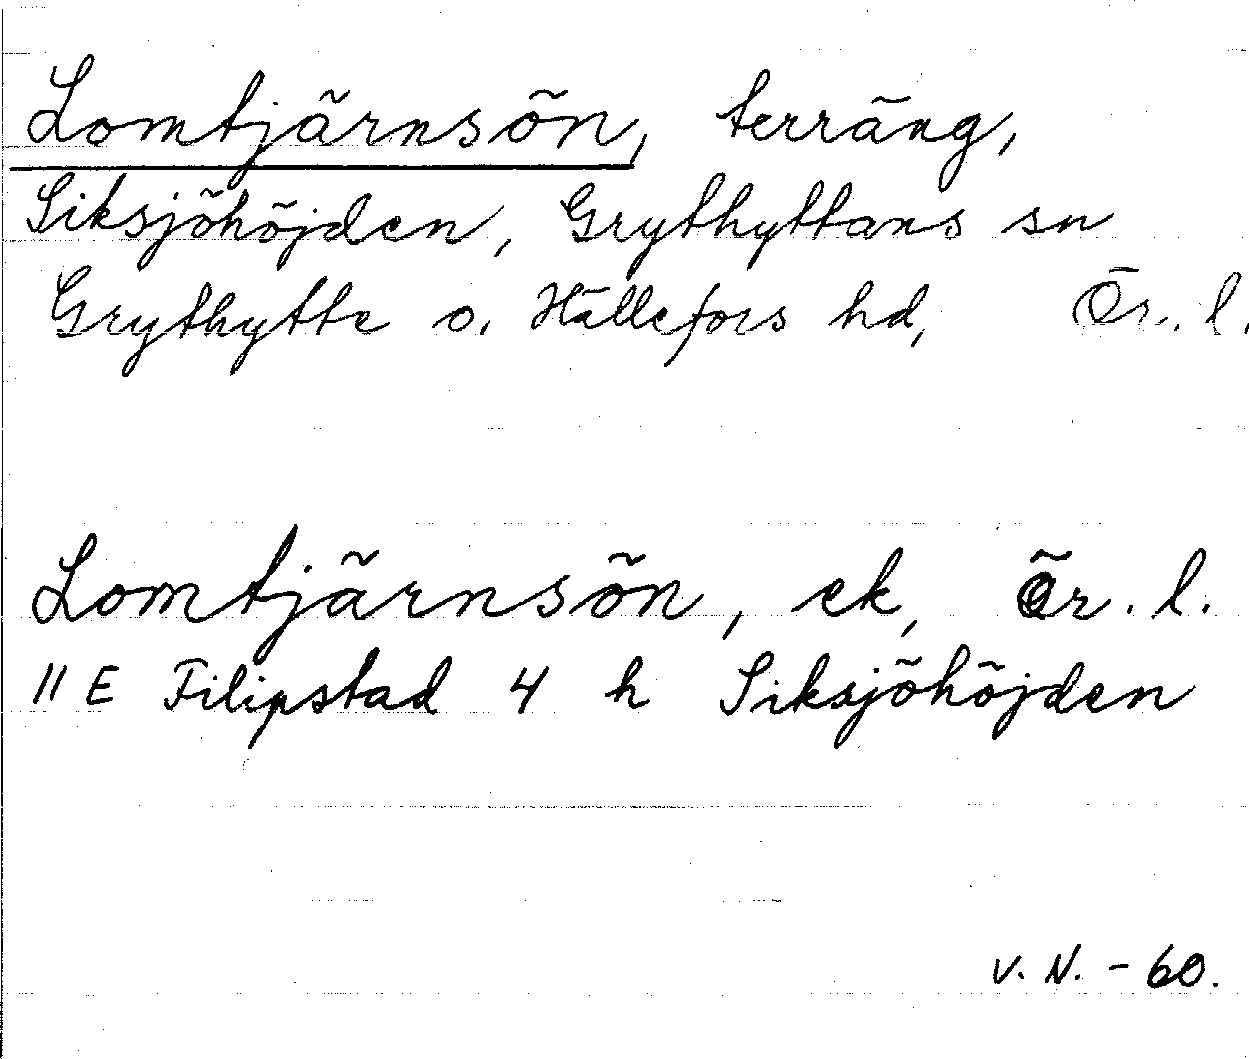 Lomtjärnsön, terräng,
Siksjöhöjden, Grythyttans sn
Grythytte o. Hällefors hd, Ör. l.
Lomtjärnsön, ek, Ör. l.
11 E Filipstad 4 h Siksjöhöjden
V. N. - 60.